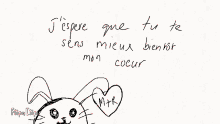 j'espere que tu te
sens mieux bientôt
mon coeur
M+R